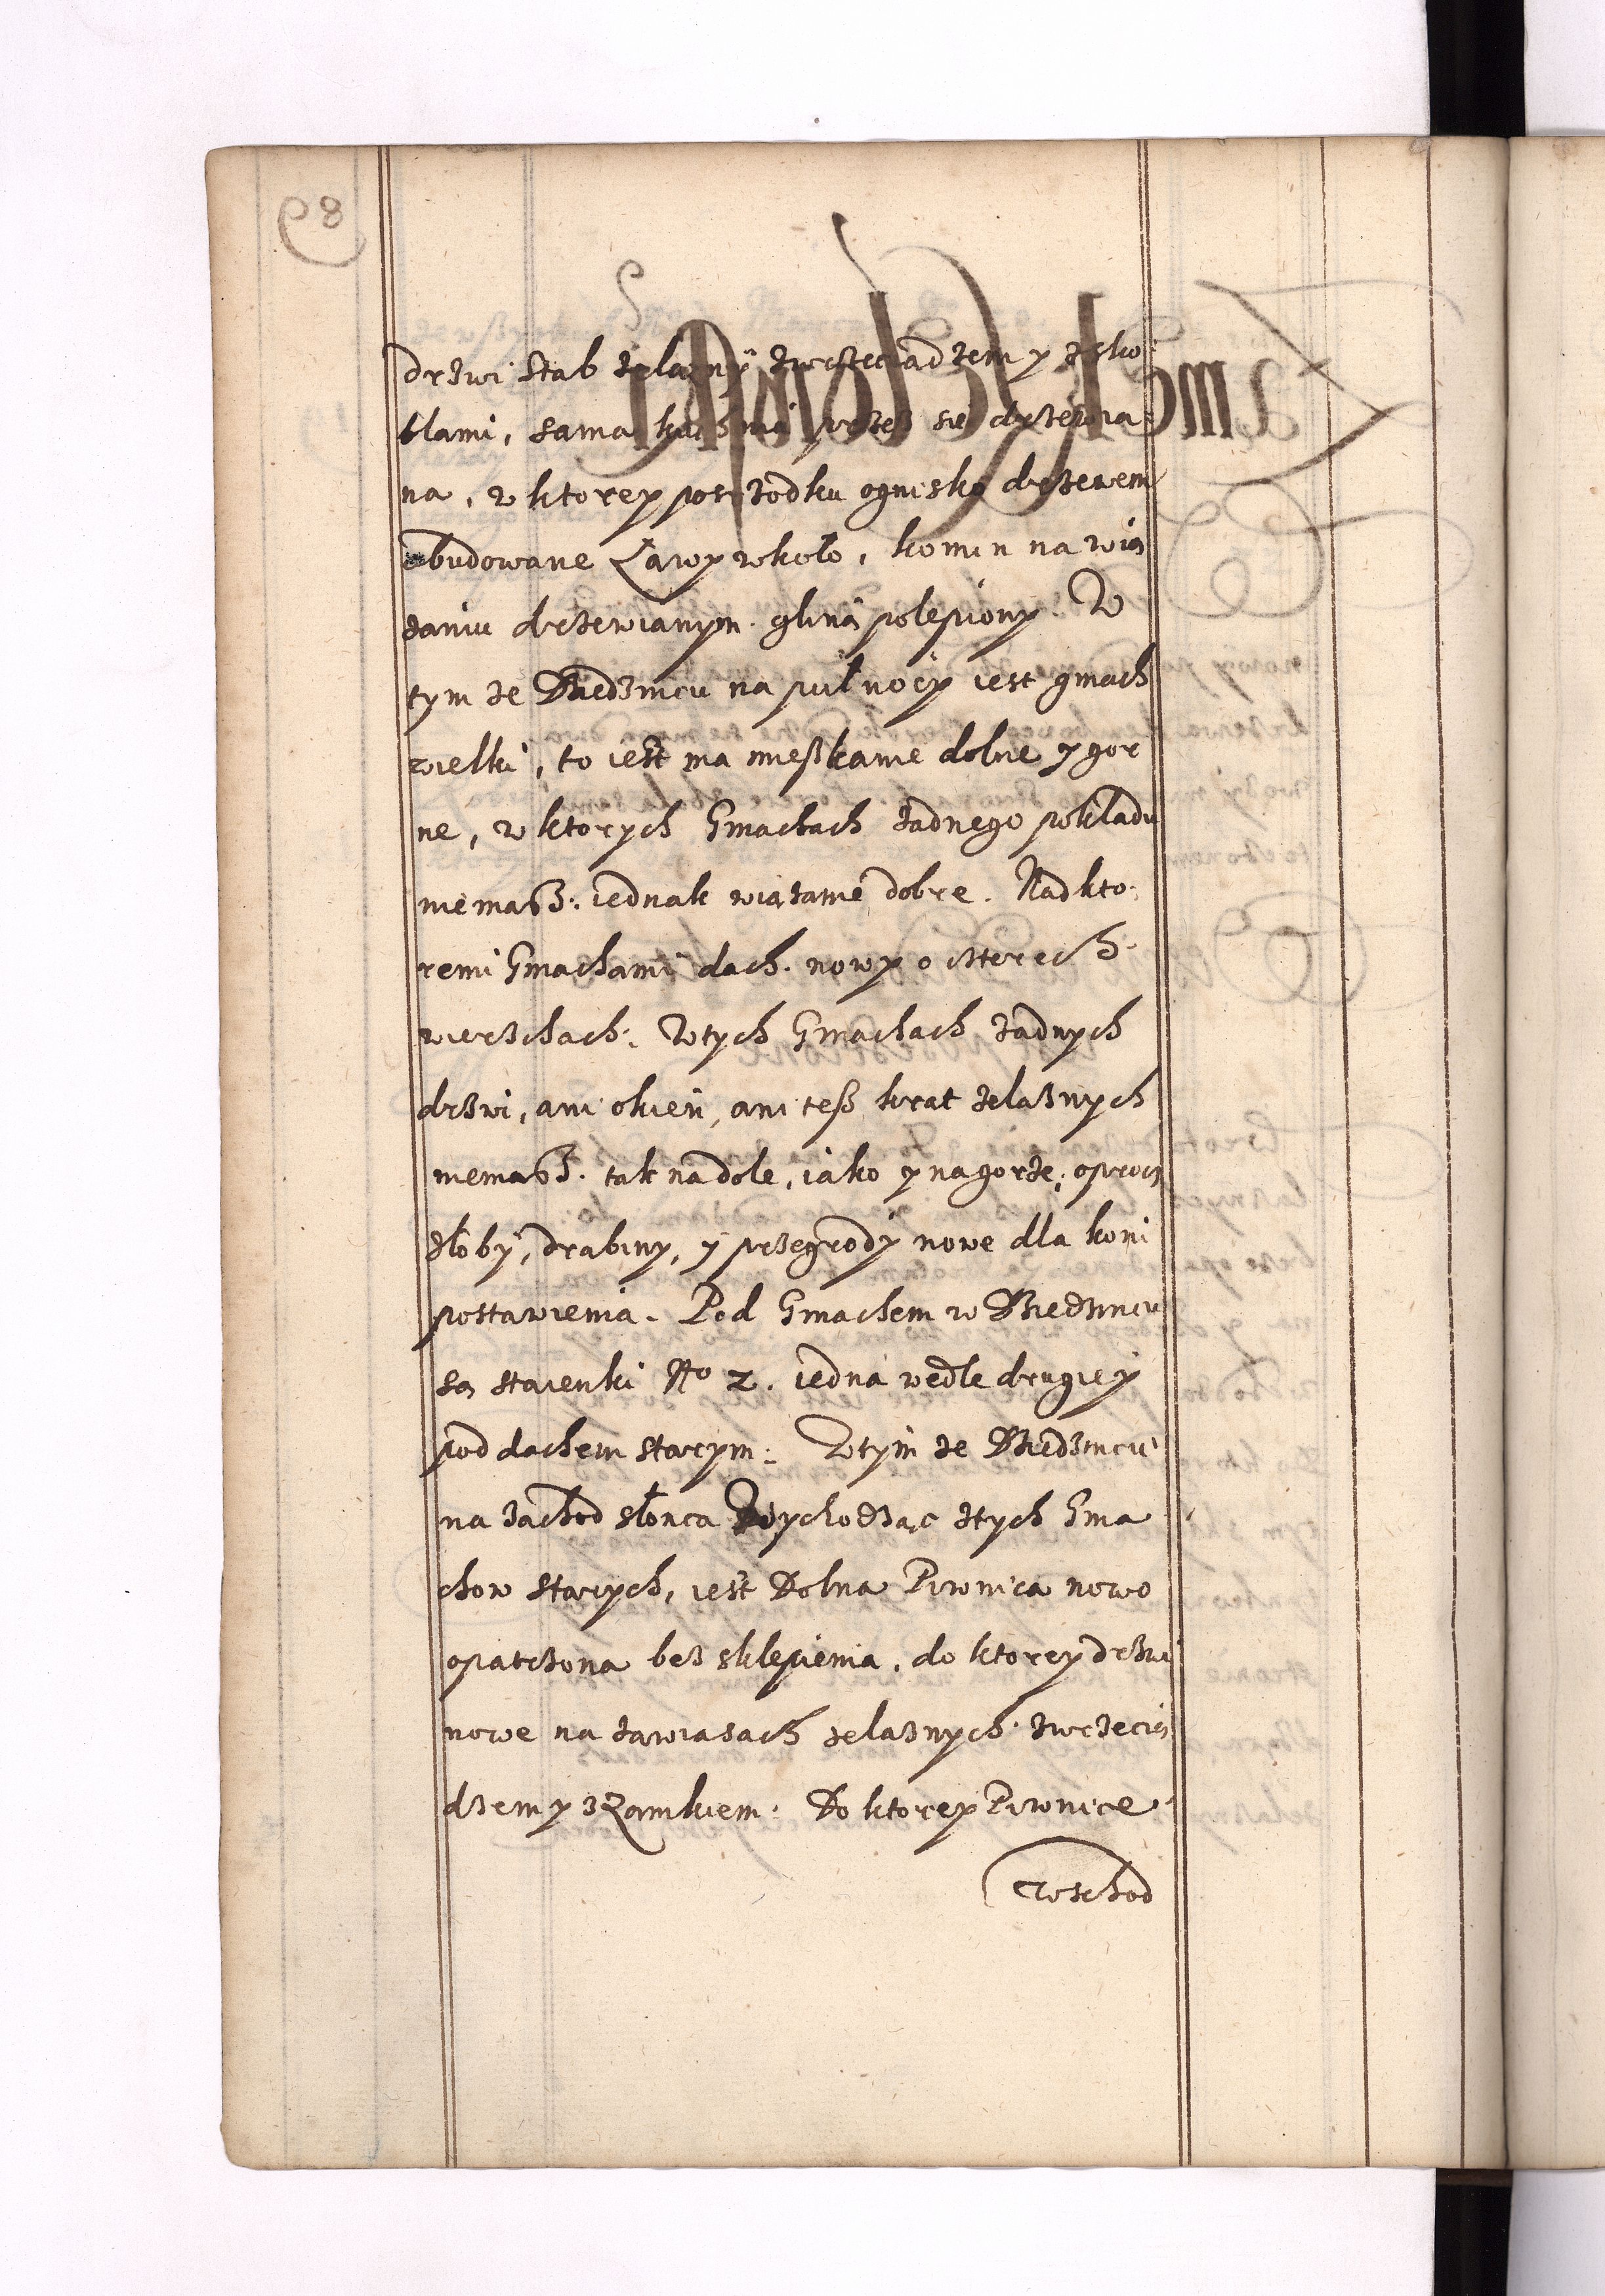 98
drzwi sztab żelazny zwrzeciądzem y zsko
blami, sama kuchnia przez się drzewia=
na, w ktorey posrzodku ognisko drzewem
obudowane Ławy wkoło, komin na wią
zaniu drzewianym gliną polepiony. W
tym ze Dziedzincu na pułnocy iest gmach
wielki, to iest ma mieszkanie dolne y gor
ne, w ktorych Gmachach żadnego pokładu
niemasz. iednak wiązanie dobre. Nad kto
remi Gmachami dach nowy o czterech
wierzchach. Wtych Gmachach żadnych
drzwi, ani okien, ani tesz krat żelaznych
niemasz. tak na dole, iako y nagorze, oprocz
żłoby, drabiny, y przegrody nowe dla koni
postawienia. Pod Gmachem w Dziedzincu
są staienki No 2. iedna wedle drugiey
pod dachem starym. Wtym ze Dziedzincu
na zachod słonca Wychodząc ztych Gma
chow starych, iest Dolna Piwnica nowo
opatrzona bez sklepienia, do ktorey drzwi
nowe na zawiasach żelaznych zwrzecią
dzem y z Zamkiem. Do ktorey Piwnice
wschod